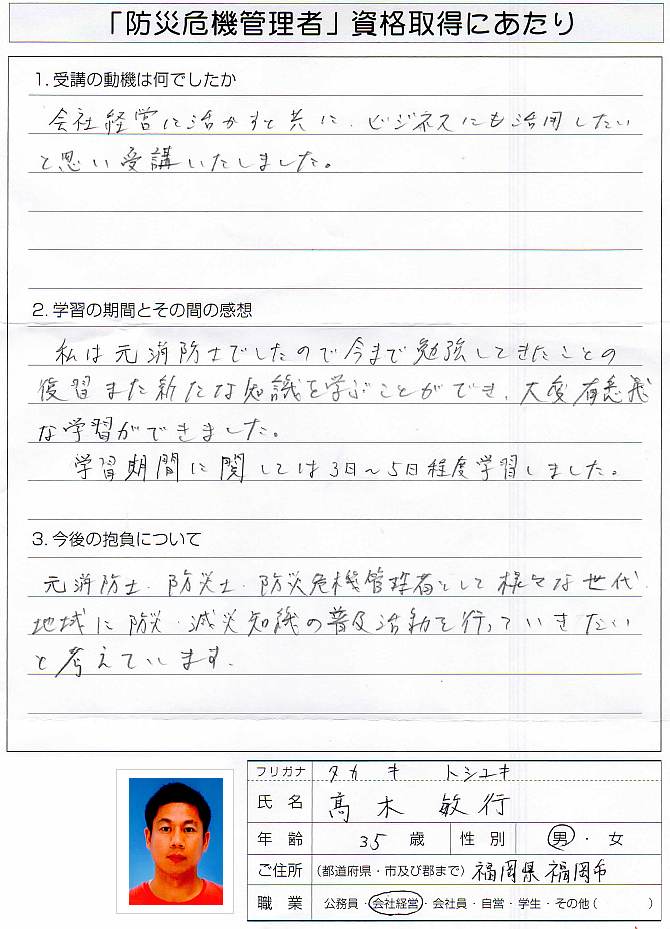 「防災危機管理者」資格取得にあたり
1. 受講の動機は何でしたか
会社経営に活かすと共に、ビジネスにも活用したい
と思い受講いたしました。
2. 学習の期間とその間の感想
私は元消防士でしたので今まで勉強してきたことの
復習また新たな知識を学ぶことができ、大変有意義
な学習ができました。
学習期間に関しては3日～5日程度学習しました。
3. 今後の抱負について
元消防士・防災士・防災危機管理者として様々な世代・
地域に防災・減災知識の普及活動を行っていきたい
と考えています。
フリガナ タカキ トシユキ
氏名 髙木 敏行
年齢 35歳 性別 男・女
ご住所 (都道府県・市及び郡まで) 福岡県福岡市
職業 公務員・会社経営・会社員・自営・学生・その他( )